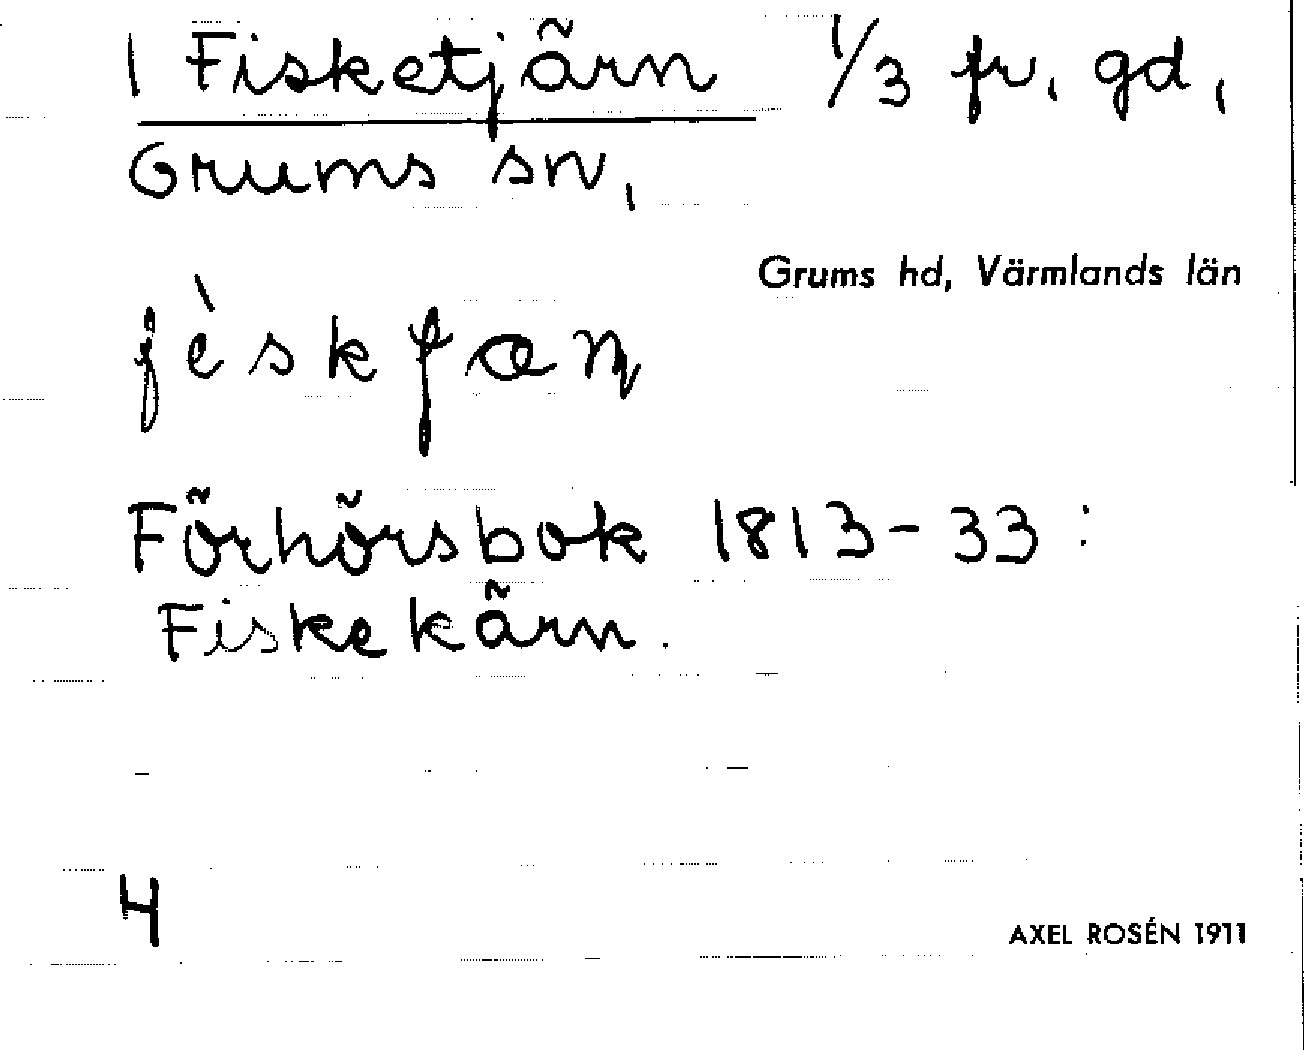 1 Fisketjärn 1/3 fr. gd.
Grums sn.
Grums hd, Värmlands län
Förhörsbok 1813-33:
Fiskekärn.
4
AXEL ROSÉN 1911